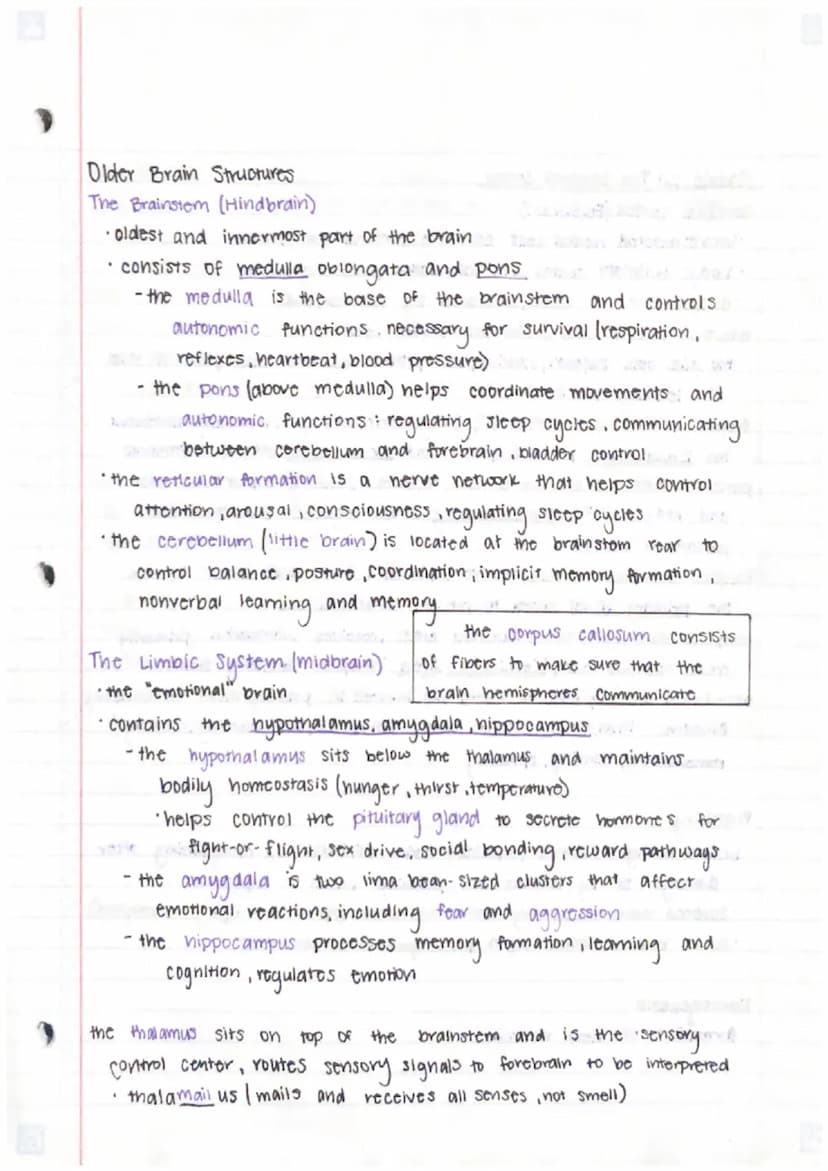 Older Brain Structures
The Brainstem (Hindbrain)
· oldest and innermost part of the brain
· consists of medulla oblongata and pons
- the medulla is the base of the brainstem and controls
autonomic functions necessary for survival (respiration,
reflexes, heartbeat, blood pressure)
- the pons (above medulla) helps coordinate movements and
autonomic functions: regulating sleep cycles, communicating
between cerebellum and forebrain, bladder control
· the reticular formation is a nerve network that helps control
attention, arousal, consciousness, regulating sleep cycles
· the cerebellum (little brain) is located at the brainstem rear to
control balance, posture, coordination; implicit memory formation,
nonverbal learning and memory
the corpus callosum consists
of fibers to make sure that the
brain hemispheres communicate
The Limbic System (midbrain)
· the "emotional" brain
· contains the hypothalamus, amygdala, hippocampus
- the hypothalamus sits below the thalamus and maintains
bodily homeostasis (hunger, thirst, temperature)
· helps control the pituitary gland to secrete hormones for
fight-or-flight, sex drive, social bonding, reward pathways
- the amygdala is two lima bean-sized clusters that affect
emotional reactions, including fear and aggression
- the hippocampus processes memory formation, learning and
cognition, regulates emotion
the thalamus sits on top of the brainstem and is the sensory
control center, routes sensory signals to forebrain to be interpreted
· thalamail us (mails and receives all senses, not smell)